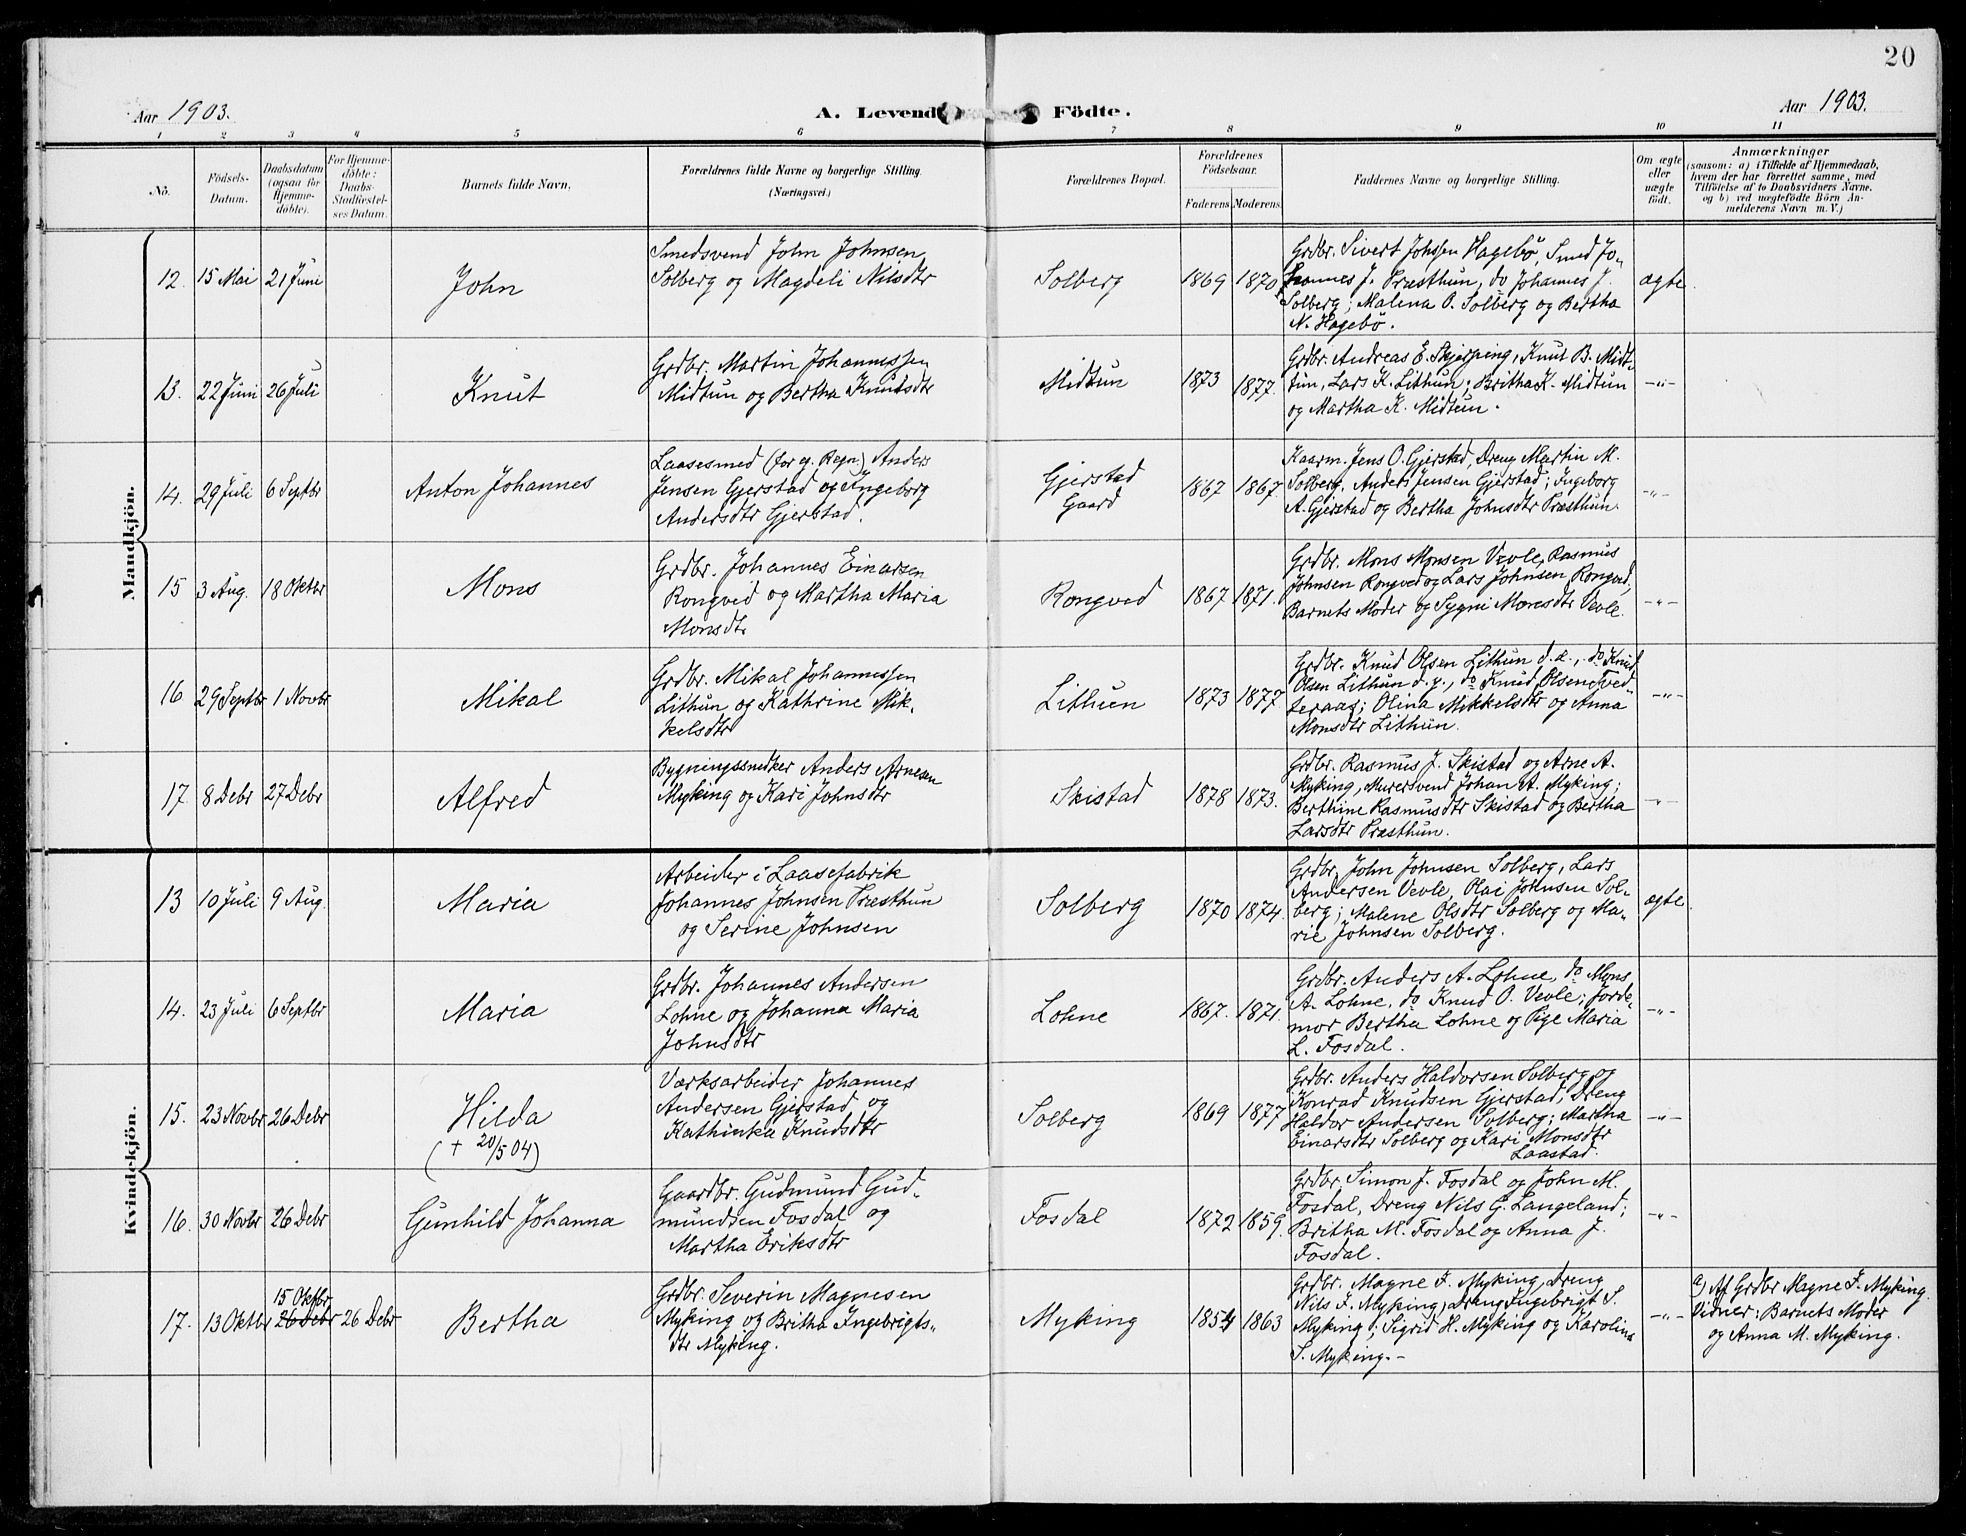 20
Aar 1903.
A. Levende Födte.
Aar 1903.
1 2 3 4 5 6 7 8 9 10 11
No.
Födsels-
Datum.
Daabsdatum
(ogsaa for
Hjemme-
döbte).
For Hjemme-
döbte:
Daabs-
Stadfæstel-
ses Datum.
Barnets fulde Navn.
Forældrenes fulde Navne og borgerlige Stilling.
(Næringsvei.)
Forældrenes Bopæl.
Forældrenes
Födselsaar.
Faderens. Moderens.
Faddernes Navne og borgerlige Stilling.
Om ægte
eller
uægte
födt.
Anmærkninger
(saasom: a) i Tilfælde af Hjemmedaab,
hvem der har forrettet samme, med
Tilföielse af to Daabsvidners Navne.
og b) ved uægtefödte Börn An-
melderens Navn m. V.)
Mandkjön.
12. 15 Mai 21 Juni
John
Smedsvend John Johnsen
Solberg og Magdeli Nilsdtr
Solberg
1869 1870
Grdbr. Sivert Johssen Hagebö, Smed Jo-
hannes J. Præsthun, do Johannes J.
Solberg; Malena O. Solberg og Bertha
N. Hagebö.
ægte
13. 22 Juni 26 Juli
Knut
Grdbr. Martin Johannessen
Midtun og Bertha Knutsdtr
Midtun
1873 1877.
Grdbr. Andreas E. Skjerping, Knut B. Midt-
tun, Lars K. Lithun; Britha K. Midtun
og Martha K. Midtun.
-"-
14. 29 Juli 6 Septbr
Anton Johannes
Laasesmed (for eg. Regn.) Anders
Jensen Gjerstad og Ingeborg
Andersdtr Gjerstad.
Gjerstad
Gaard
1867 1867.
Kaarm. Jens O. Gjerstad, Dreng Martin M.
Solberg, Anders Jensen Gjerstad; Ingeborg
A. Gjerstad og Bertha Johnsdtr Præsthun.
-"-
15 3 Aug. 18 Oktbr
Mons
Grdbr. Johannes Einarsen
Rongved og Martha Maria
Monsdtr
Rongved
1867 1871.
Grdbr. Mons Monsen Vevle, Rasmus
Johnsen Rongved og Lars Johnsen Rongved,
Barnets Moder og Sygni Monsdtr Vevle.
-"-
16 29 Septbr 1 Novbr
Mikal
Grdbr. Mikal Johannessen
Lithun og Kathrine Mik-
kelsdtr
Lithun
1873 1877
Grdbr. Knud Olsen Lithun d. e., do Knud
Olsen Lithun d. y., do Knud Olsen Tved-
teraas; Olina Mikkelsdtr og Anna
Monsdtr Lithun.
-"-
17. 8 Debr 27 Debr
Alfred
Bygningssnedker Anders Arnesen
Myking og Kari Johnsdtr
Skistad
1878 1873.
Grdbr. Rasmus J. Skistad og Arne A.
Myking, Murersvend Johan A. Myking;
Berthine Rasmusdtr Skistad og Bertha
Larsdtr Præsthun.
-"-
Kvindekjön.
13 10 Juli 9 Aug.
Maria
Arbeider i Laasefabrik
Johannes Johnsen Præsthun
og Serine Johnsen
Solberg
1870 1874.
Grdbr. John Johnsen Solberg, Lars
Andersen Vevle, Olai Johnsen Sol-
berg; Malene Olsdtr Solberg og Ma-
rie Johnsen Solberg.
ægte.
14. 23 Juli 6 Septbr
Maria
Grdbr. Johannes Andersen
Lohne og Johanna Maria
Johnsdtr
Lohne
1867. 1871.
Grdbr. Anders A. Lohne, do Mons
A. Lohne, do Knud O. Vevle; Jorde-
mor Bertha Lohne og Pige Maria
L. Fosdal.
-"-
15. 23 Novbr 26 Debr
Hilda
(+ 20/5 04)
Værksarbeider Johannes
Andersen Gjerstad og
Kathinka Knudsdtr
Solberg
1869 1877
Grdbr. Anders Haldorsen Solberg og
Konrad Knudsen Gjerstad; Dreng
Haldor Andersen Solberg; Martha
Einarsdtr Solberg og Kari Monsdtr
Laastad.
-"-
16. 30 Novbr 26 Debr
Gunhild Johanna
Gaardbr. Gudmund Gud-
mundsen Fosdal og
Martha Eriksdtr
Fosdal
1872 1859.
Grdbr. Simon J. Fosdal og John M.
Fosdal, Dreng Nils G. Langeland;
Britha M. Fosdal og Anna J.
Fosdal.
-"-
17. 13 Oktbr 15 Oktbr 26 Debr 26 Debr
Bertha
Grdbr. Severin Magnesen
Myking og Britha Ingebrigts-
dtr Myking.
Myking
1854 1863
Grdbr. Magne F. Myking, Dreng
Nils F. Myking, Dreng Ingebrigt S.
Myking; Sigrid H. Myking og Karolina
S. Myking.-
-"-
a) Af Grdbr Magne F. Myking.
Vidner: Barnets Moder
og Anna M. Myking.